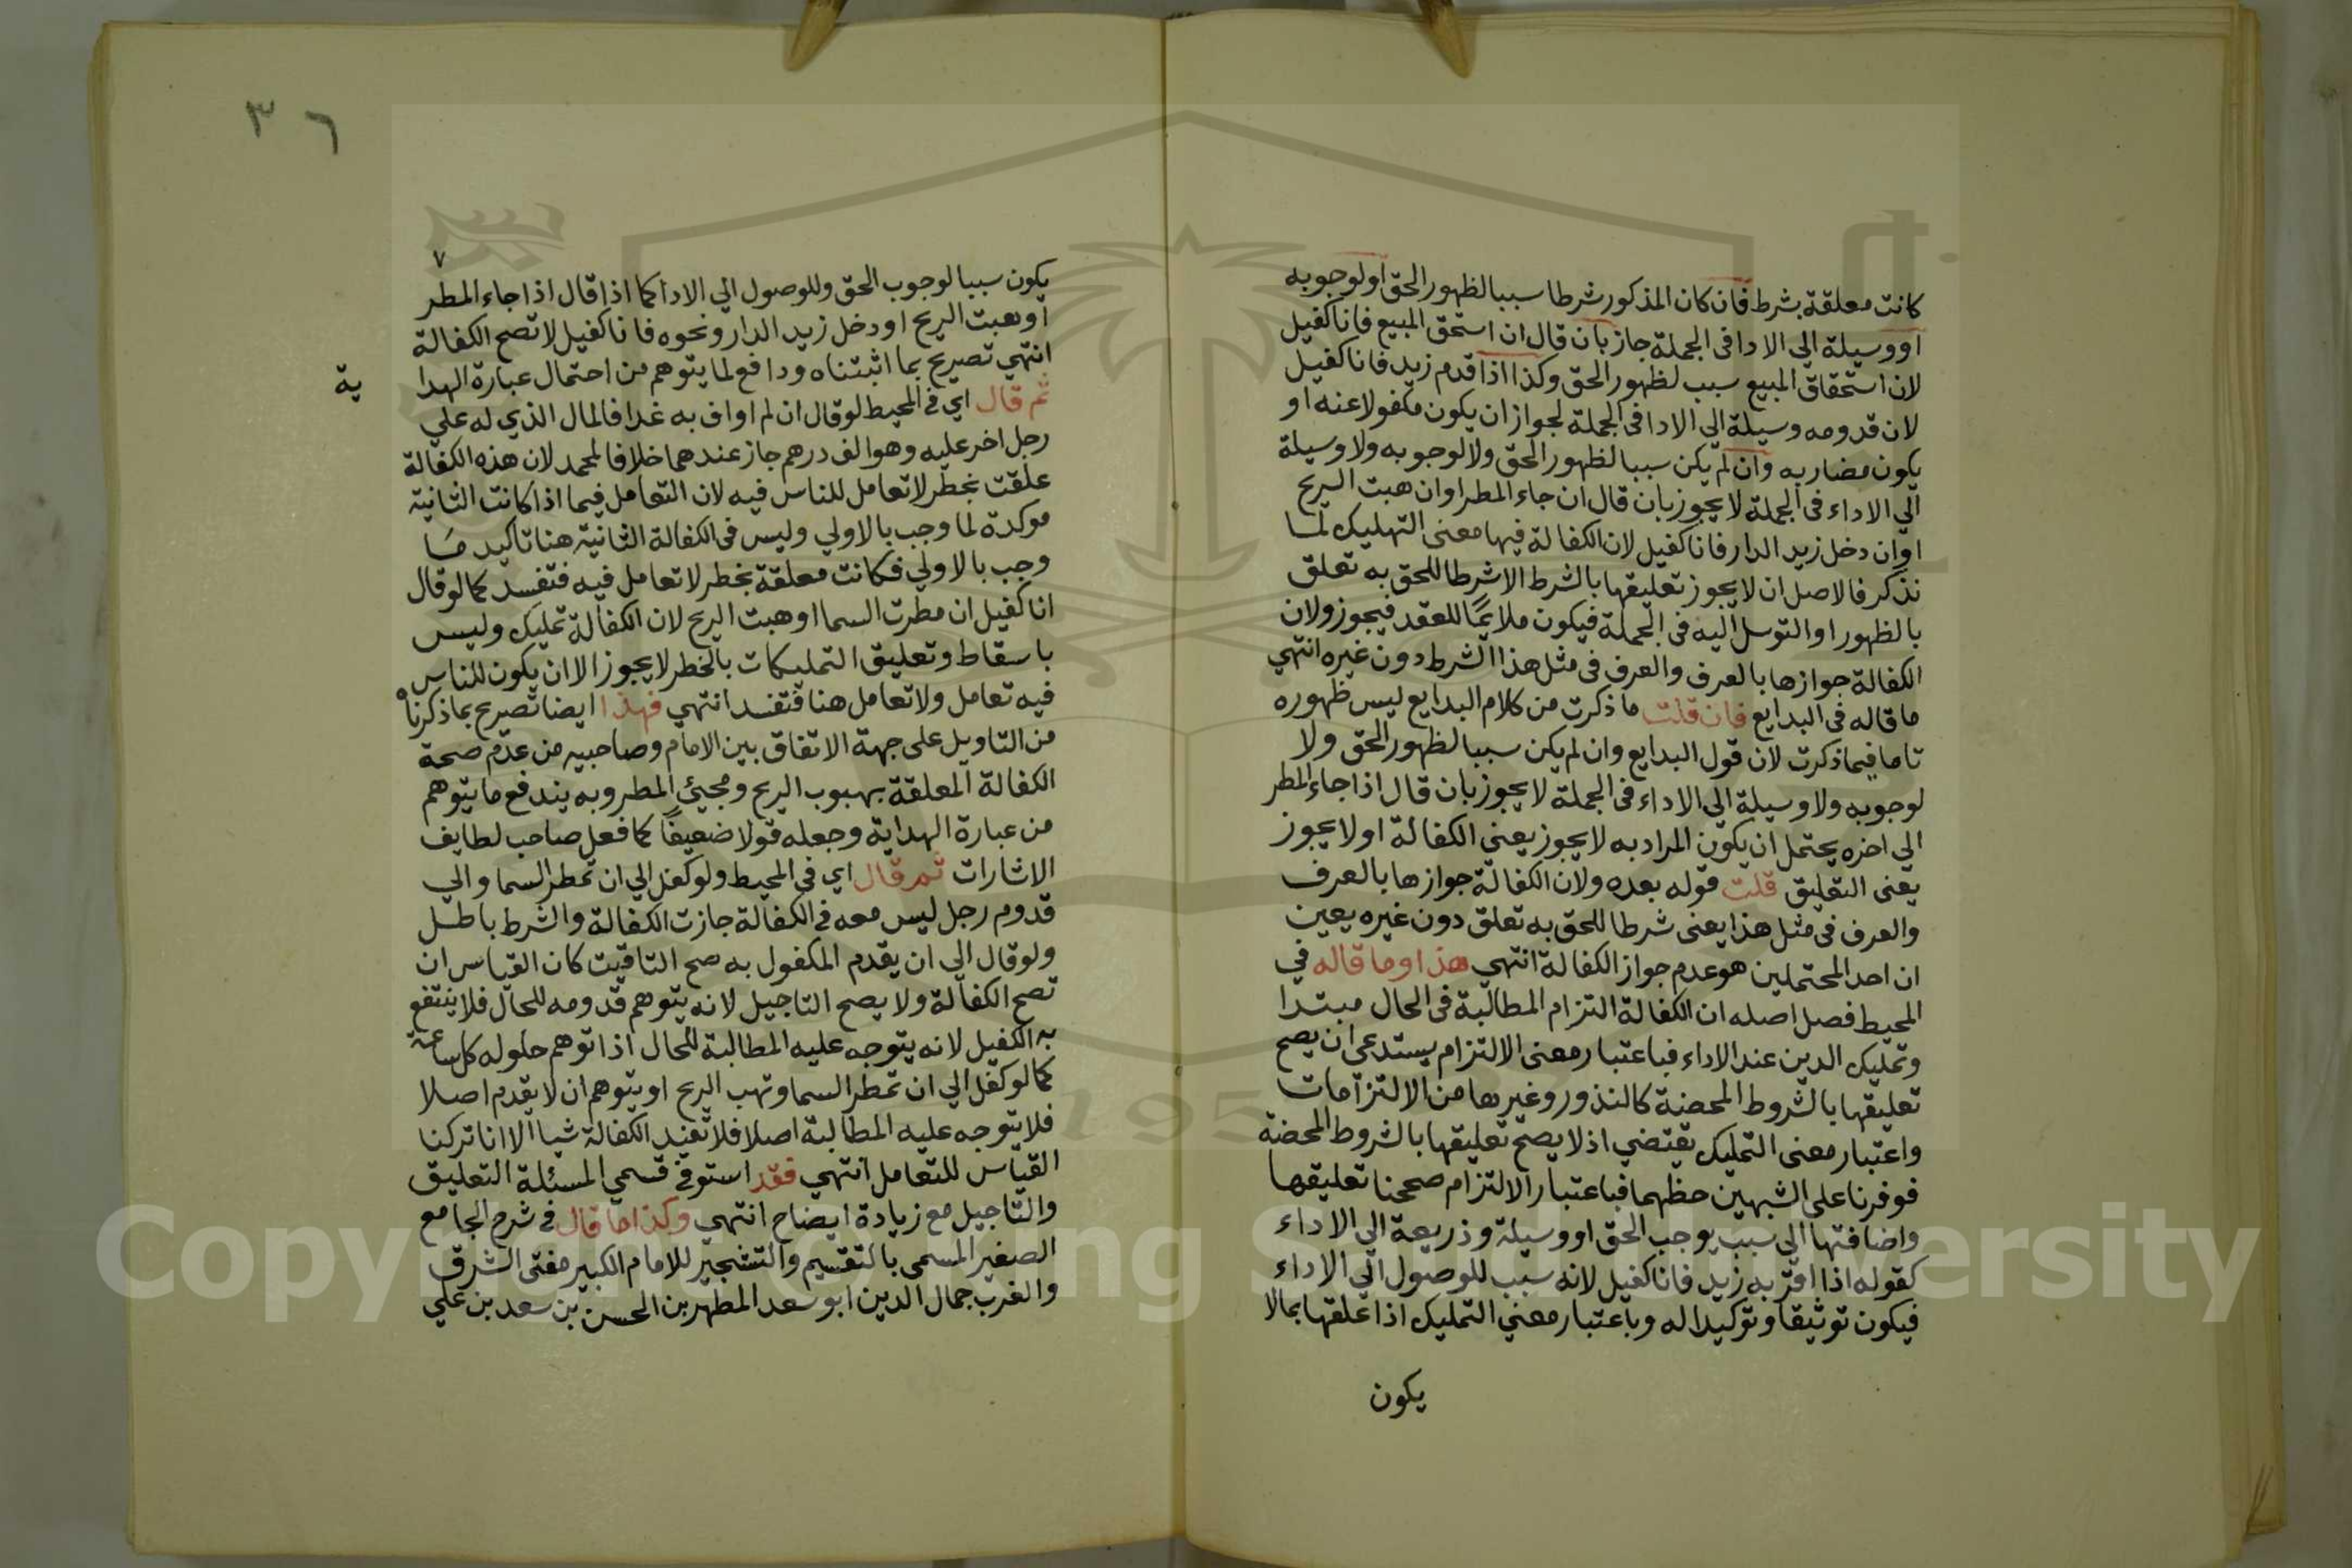 كانت معلقة بشرط فان كان المذكور شرطا سببا لظهور الحق او لوجوبه
او وسيلة الي الادا في الجملة جاز بان قال ان استحق المبيع فانا كفيل
لان استحقاق المبيع سبب لظهور الحق وكذا اذا قدم زيد فانا كفيل
لان قدومه وسيلة الي الادا في الجملة لجواز ان يكون مكفولا عنه او
يكون مضاربه وان لم يكن سببا لظهور الحق ولا لوجوبه ولا وسيلة
الي الاداء في الجملة لا يجوز بان قال ان جاء المطر او ان هبت الريح
او ان دخل زيد الدار فانا كفيل لان الكفالة فيها معنى التمليك لما
نذكر فالاصل ان لا يجوز تعليقها بالشرط الا شرطا للحق به تعلق
بالظهور او التوسل اليه في الجملة فيكون ملايمًا للعقد فيجوز ولان
الكفالة جوازها بالعرف والعرف في مثل هذا الشرط دون غيره انتهي
ما قاله في البدايع فان قلت ما ذكرت من كلام البدايع ليس ظهوره
تاما فيما ذكرت لان قول البدايع وان لم يكن سببا لظهور الحق ولا
لوجوبه ولا وسيلة الي الاداء في الجملة لا يجوز بان قال اذا جاء المطر
الي اخره يحتمل ان يكون المراد به لا يجوز يعني الكفالة او لا يجوز
يعني التعليق قلت قوله بعده ولان الكفالة جوازها بالعرف
والعرف في مثل هذا يعني شرطا للحق به تعلق دون غيره يعين
ان احد المحتملين هو عدم جواز الكفالة انتهي هذا وما قاله في
المحيط فصل اصله ان الكفالة التزام المطالبة في الحال مبتدا
وتمليك الدين عند الاداء فباعتبار معنى الالتزام يستدعي ان يصح
تعليقها بالشروط المحضة كالنذور وغيرها من الالتزامات
واعتبار معنى التمليك يقتضي اذ لا يصح تعليقها بالشروط المحضة
فوفرنا على الشبهين حظهما فباعتبار الالتزام صححنا تعليقها
واضافتها الي سبب يوجب الحق او وسيلة وذريعة الي الاداء
كقوله اذا اقر به زيد فانا كفيل لانه سبب للوصول الي الاداء
فيكون توثيقا وتوكيدا له وباعتبار معني التمليك اذا علقها بما لا
يكون
٣٦
٧
يكون سببا لوجوب الحق وللوصول الي الادا كما اذا قال اذا جاء المطر
او هبت الريح او دخل زيد الدار ونحوه فانا كفيل لا تصح الكفالة
انتهي تصريح بما اثبتناه ودافع لما يتوهم من احتمال عبارة الهدا
ية
ثم قال اي في المحيط لو قال ان لم اواف به غدا فالمال الذي له علي
رجل اخر عليه وهو الف درهم جاز عندهما خلافا لمحمد لان هذه الكفالة
علقت بخطر لا تعامل للناس فيه لان التعامل فيما اذا كانت الثانية
موكدة لما وجب بالاولي وليس في الكفالة الثانية هنا تاكيد ما
وجب بالاولي فكانت معلقة بخطر لا تعامل فيه فتفسد كما لو قال
انا كفيل ان مطرت السما او هبت الريح لان الكفالة تمليك وليس
باسقاط وتعليق التمليكات بالخطر لا يجوز الا ان يكون للناس
فيه تعامل ولا تعامل هنا فتفسد انتهي فهذا ايضا تصريح بما ذكرناه
من التاويل على جهة الاتفاق بين الامام وصاحبيه من عدم صحة
الكفالة المعلقة بهبوب الريح ومجيئ المطر وبه يندفع ما يتوهم
من عبارة الهداية وجعله قولا ضعيفًا كما فعل صاحب لطايف
الاشارات ثم قال اي في المحيط ولو كفل الي ان تمطر السما والي
قدوم رجل ليس معه في الكفالة جازت الكفالة والشرط باطل
ولو قال الي ان يقدم المكفول به صح التاقيت كان القياس ان
تصح الكفالة ولا يصح التاجيل لانه يتوهم قدومه للحال فلا ينتفع
به الكفيل لانه يتوجه عليه المطالبة للحال اذا توهم حلوله كل ساعة
كما لو كفل الي ان تمطر السما وتهب الريح او يتوهم ان لا يقدم اصلا
فلا يتوجه عليه المطالبة اصلا فلا تفيد الكفالة شيا الا انا تركنا
القياس للتعامل انتهي فقد استوفي قسمي المسئلة التعليق
والتاجيل مع زيادة ايضاح انتهي وكذا ما قال في شرح الجامع
الصغير المسمى بالتقسيم والتشجير للامام الكبير مفتي الشرق
والغرب جمال الدين ابو سعد المطهر بن الحسن بن سعد بن علي